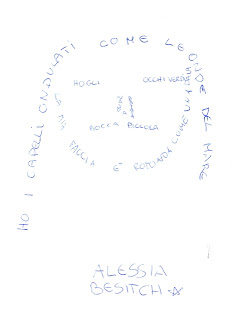 HO I CAPELLI ONDULATI COME LE ONDE DEL MARE
HO GLI OCCHI VERDI
BOCCA PICCOLA
LA MIA FACCIA È ROTONDA COME
ALESSIA
BESITCH